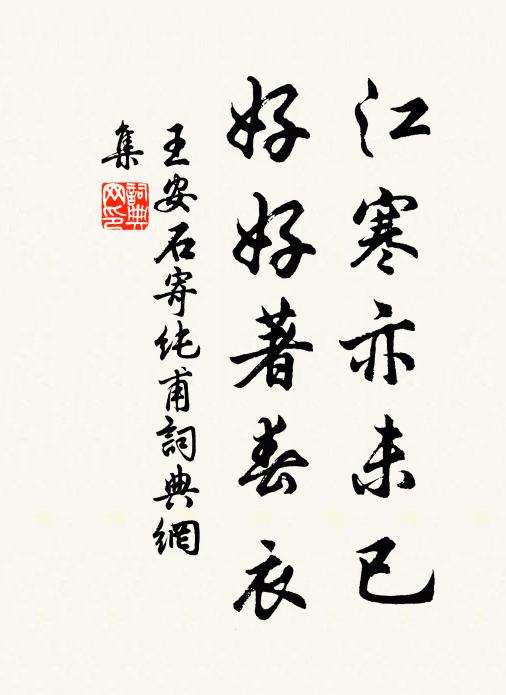 江寒亦未已
好好著春衣
王安石寄纯甫詞典網
集
詞典
网印